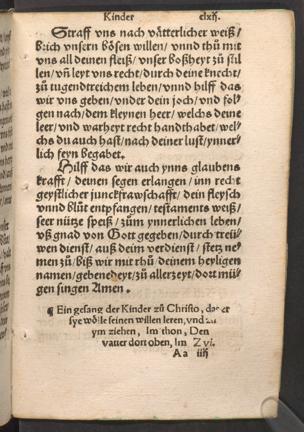 Kinder clxij.
Straff vns nach vätterlicher weiß/
brich vnsern bösen willen/ vnnd thů mit
vns all deinen fleiß/ vnser boßheyt zů stil
len/ vn̄ leyt vns recht/ durch deine knecht/
zů tugendtreichem leben/ vnnd hilff das
wir vns geben/ vnder dein joch/ vnd fol-
gen nach/ dem kleynen heer/ welchs deine
leer/ vnd warheyt recht handthabet/ wel-
chs du auch hast/ nach deiner lust/ ynner-
lich seyn begabet.
Hilff das wir auch ynns glaubens
krafft/ deinen segen erlangen/ inn recht
geystlicher junckfrawschafft/ dein fleysch
vnnd blůt entpfangen/ testaments weiß/
seer nütze speiß/ zům ynnerlichen leben/
vß gnad von Gott gegeben/ durch treü-
wen dienst/ auß deim verdienst/ stetz ne-
men zů/ biß wir mit rhů/ deinem heyligen
namen/ gebenedeyt/ zů aller zeyt/ dort mü-
gen singen Amen.
¶ Ein gesang der Kinder zů Christo, das er
sye wölle seinen willen leren, vnd zů
ym ziehen, Im thon, Den
vatter dort oben, Im Z vi.
Aa iiij